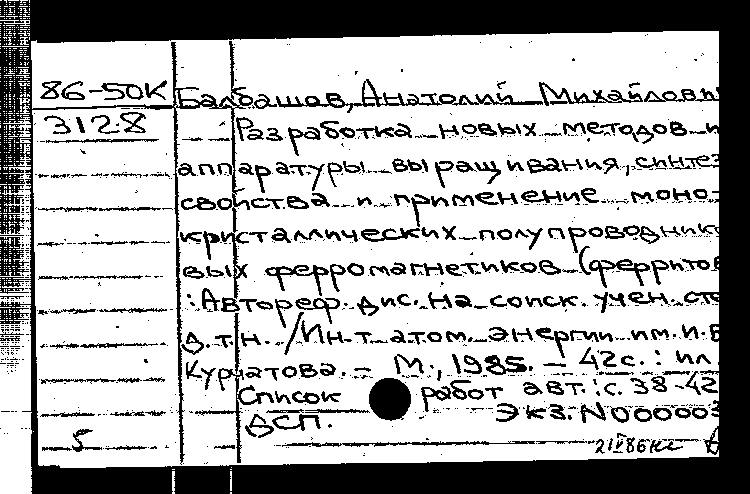 86-50К Балбашов, Анатолий Михайлови
3128 Разработка новых методов и
аппаратуры выращивания, синтез
свойства и применение моно-
кристаллических полупроводник
вых ферромагнетиков (ферритов
: Автореф. дис. на соиск. учен. сте
д.т.н. / Ин-т атом. энергии им. И.В
Курчатова. – М., 1985. – 42с. : ил.
Список работ авт.: с. 38-42
ДСП. Экз. N000003
5